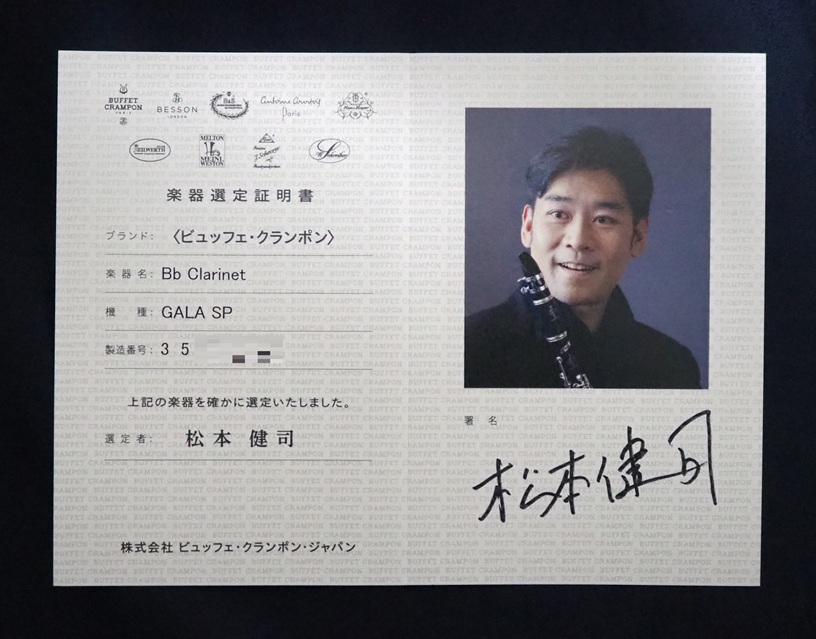 BUFFET
CRAMPON
PARIS
BESSON
LONDON
B&S
Antoine Courtois
Paris
KEILWERTH
MELTON
MEINL
WESTON
J. Scherzer
W. Schreiber
楽器選定証明書
ブランド: 〈ビュッフェ・クランポン〉
楽器名: Bb Clarinet
機種: GALA SP
製造番号: 3 5
上記の楽器を確かに選定いたしました。
選定者: 松本 健司
株式会社 ビュッフェ・クランポン・ジャパン
署名
松本健司